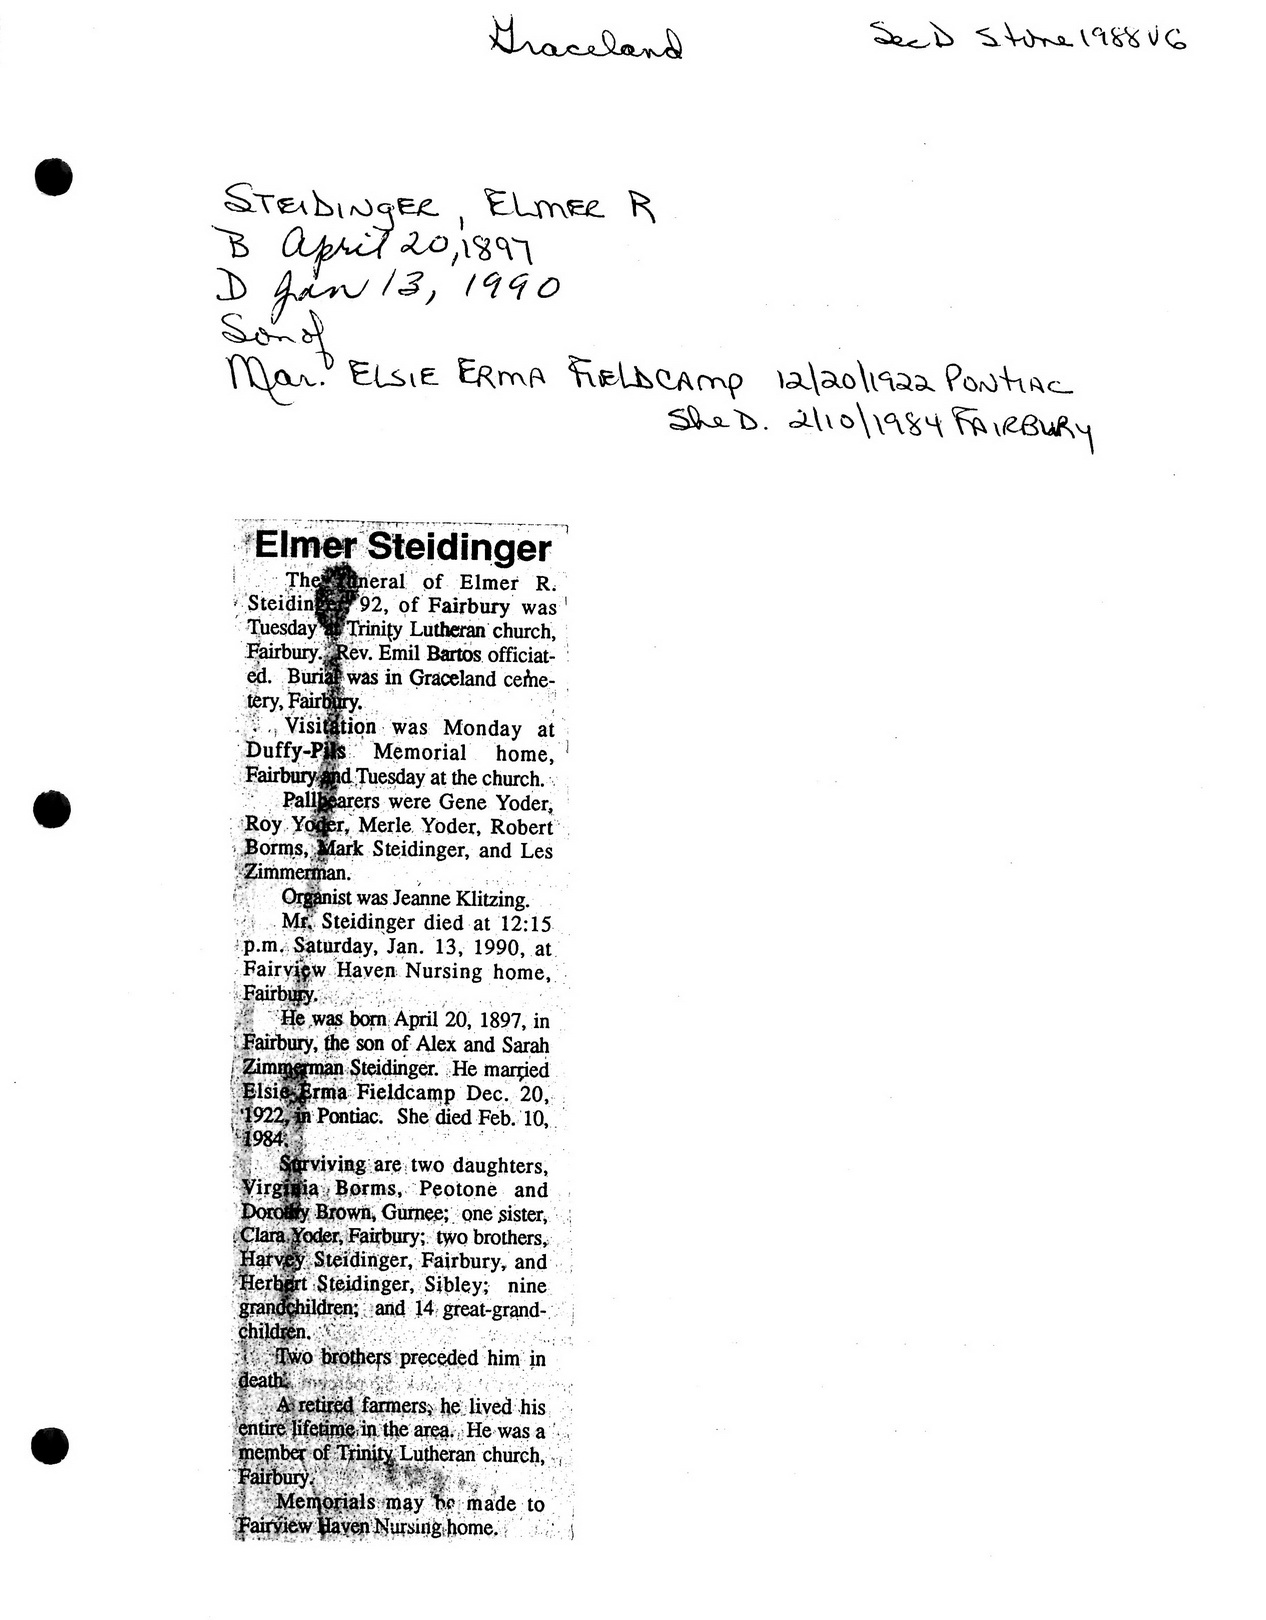 Graceland
Sec D Stone 1988 VG
STEIDINGER, ELMER R
B April 20, 1897
D Jan 13, 1990
Son of
Mar. ELSIE ERMA FIELDCAMP 12/20/1922 PONTIAC
She D. 2/10/1984 FAIRBURY
Elmer Steidinger
The funeral of Elmer R.
Steidinger, 92, of Fairbury was
Tuesday at Trinity Lutheran church,
Fairbury. Rev. Emil Bartos officiat-
ed. Burial was in Graceland ceme-
tery, Fairbury.
Visitation was Monday at
Duffy-Pils Memorial home,
Fairbury and Tuesday at the church.
Pallbearers were Gene Yoder,
Roy Yoder, Merle Yoder, Robert
Borms, Mark Steidinger, and Les
Zimmerman.
Organist was Jeanne Klitzing.
Mr. Steidinger died at 12:15
p.m. Saturday, Jan. 13, 1990, at
Fairview Haven Nursing home,
Fairbury.
He was born April 20, 1897, in
Fairbury, the son of Alex and Sarah
Zimmerman Steidinger. He married
Elsie Erma Fieldcamp Dec. 20,
1922, in Pontiac. She died Feb. 10,
1984.
Surviving are two daughters,
Virginia Borms, Peotone and
Dorothy Brown, Gurnee; one sister,
Clara Yoder, Fairbury; two brothers,
Harvey Steidinger, Fairbury, and
Herbert Steidinger, Sibley; nine
grandchildren; and 14 great-grand-
children.
Two brothers preceded him in
death.
A retired farmers, he lived his
entire lifetime in the area. He was a
member of Trinity Lutheran church,
Fairbury.
Memorials may be made to
Fairview Haven Nursing home.